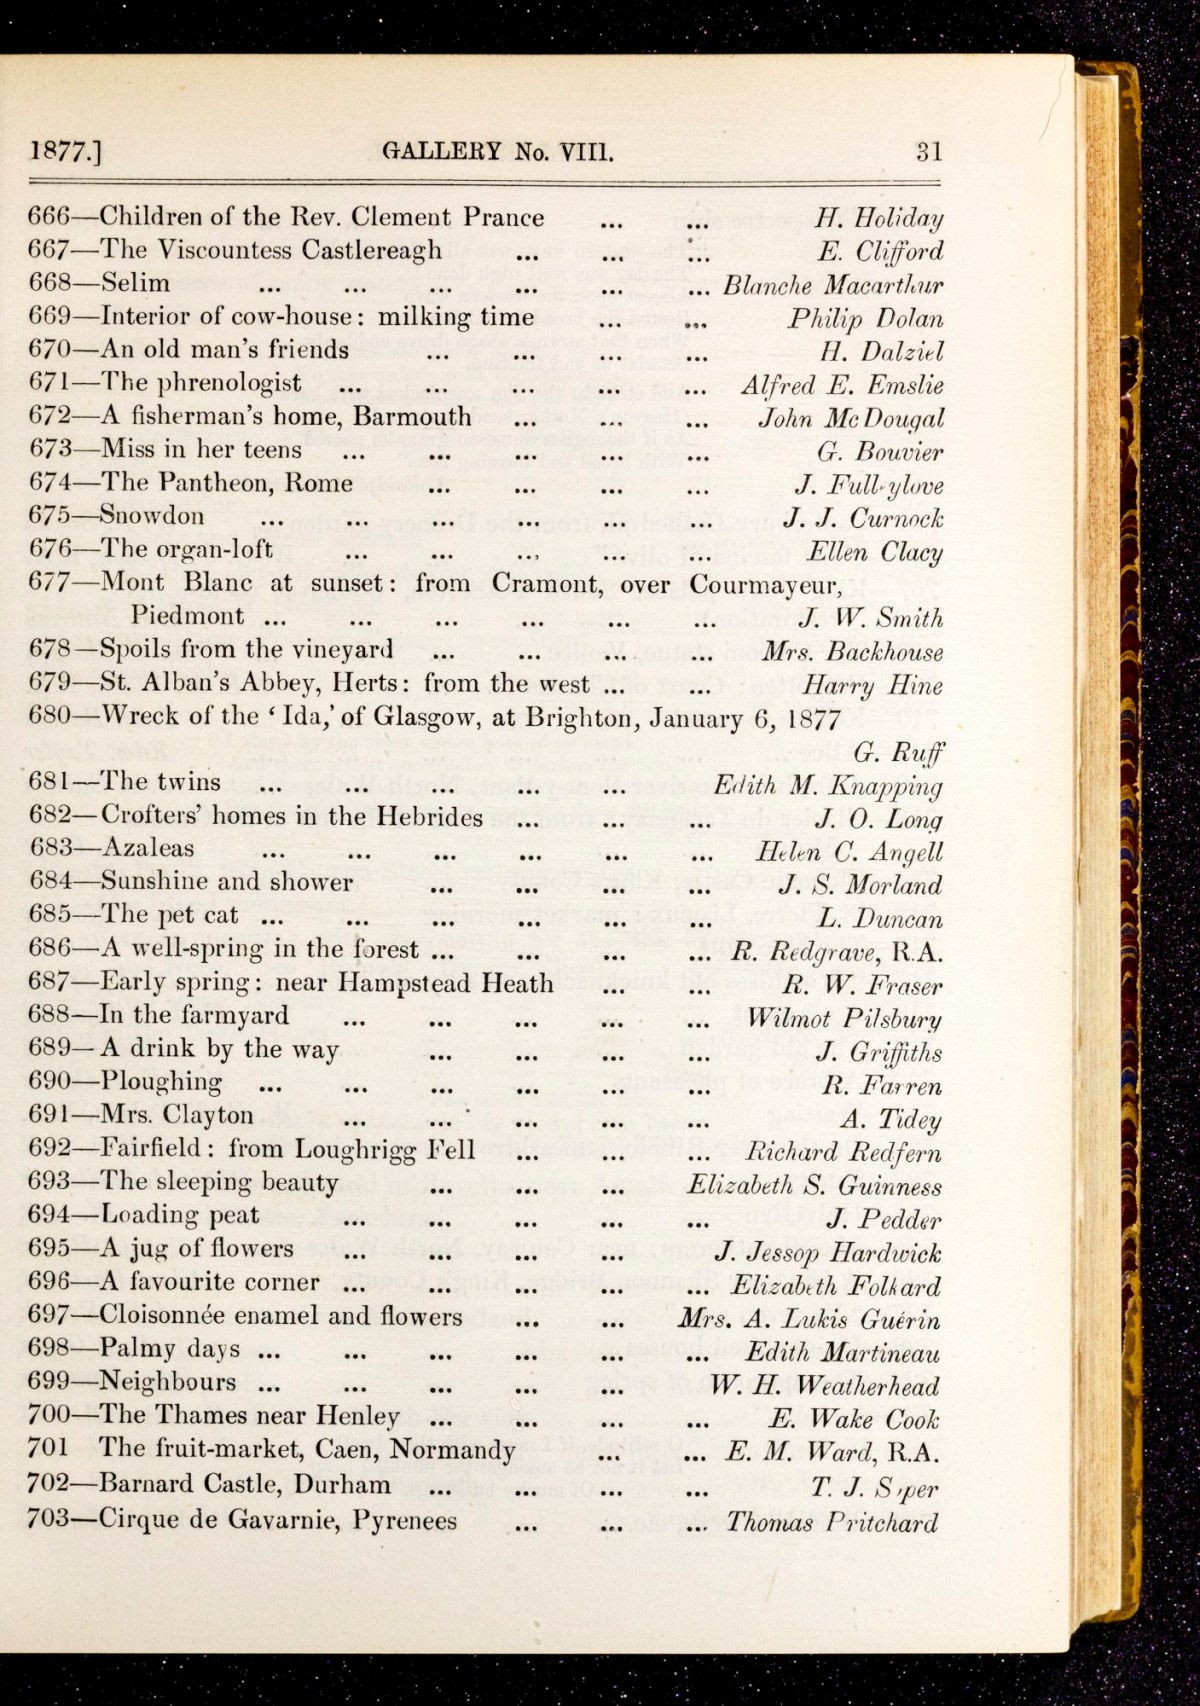 1877.] GALLERY No. VIII. 31
666—Children of the Rev. Clement Prance ... ... H. Holiday
667—The Viscountess Castlereagh ... ... ... E. Clifford
668—Selim ... ... ... ... ... ... Blanche Macarthur
669—Interior of cow-house: milking time ... ... Philip Dolan
670—An old man's friends ... ... ... ... H. Dalziel
671—The phrenologist ... ... ... ... ... Alfred E. Emslie
672—A fisherman's home, Barmouth ... ... ... John McDougal
673—Miss in her teens ... ... ... ... ... G. Bouvier
674—The Pantheon, Rome ... ... ... ... J. Fulleylove
675—Snowdon ... ... ... ... ... ... J. J. Curnock
676—The organ-loft ... ... ... ... ... Ellen Clacy
677—Mont Blanc at sunset: from Cramont, over Courmayeur,
Piedmont ... ... ... ... ... ... J. W. Smith
678—Spoils from the vineyard ... ... ... ... Mrs. Backhouse
679—St. Alban's Abbey, Herts: from the west ... ... Harry Hine
680—Wreck of the ‘Ida,’ of Glasgow, at Brighton, January 6, 1877
G. Ruff
681—The twins ... ... ... ... ... Edith M. Knapping
682—Crofters' homes in the Hebrides ... ... ... J. O. Long
683—Azaleas ... ... ... ... ... ... Helen C. Angell
684—Sunshine and shower ... ... ... ... J. S. Morland
685—The pet cat ... ... ... ... ... ... L. Duncan
686—A well-spring in the forest ... ... ... ... R. Redgrave, R.A.
687—Early spring: near Hampstead Heath ... ... R. W. Fraser
688—In the farmyard ... ... ... ... ... Wilmot Pilsbury
689—A drink by the way ... ... ... ... J. Griffiths
690—Ploughing ... ... ... ... ... ... R. Farren
691—Mrs. Clayton ... ... ... ... ... A. Tidey
692—Fairfield: from Loughrigg Fell ... ... ... Richard Redfern
693—The sleeping beauty ... ... ... Elizabeth S. Guinness
694—Loading peat ... ... ... ... ... J. Pedder
695—A jug of flowers ... ... ... ... J. Jessop Hardwick
696—A favourite corner ... ... ... ... ... Elizabeth Folkard
697—Cloisonnée enamel and flowers ... ... Mrs. A. Lukis Guérin
698—Palmy days ... ... ... ... ... ... Edith Martineau
699—Neighbours ... ... ... ... ... W. H. Weatherhead
700—The Thames near Henley ... ... ... ... E. Wake Cook
701 The fruit-market, Caen, Normandy ... ... E. M. Ward, R.A.
702—Barnard Castle, Durham ... ... ... ... T. J. Soper
703—Cirque de Gavarnie, Pyrenees ... ... ... Thomas Pritchard